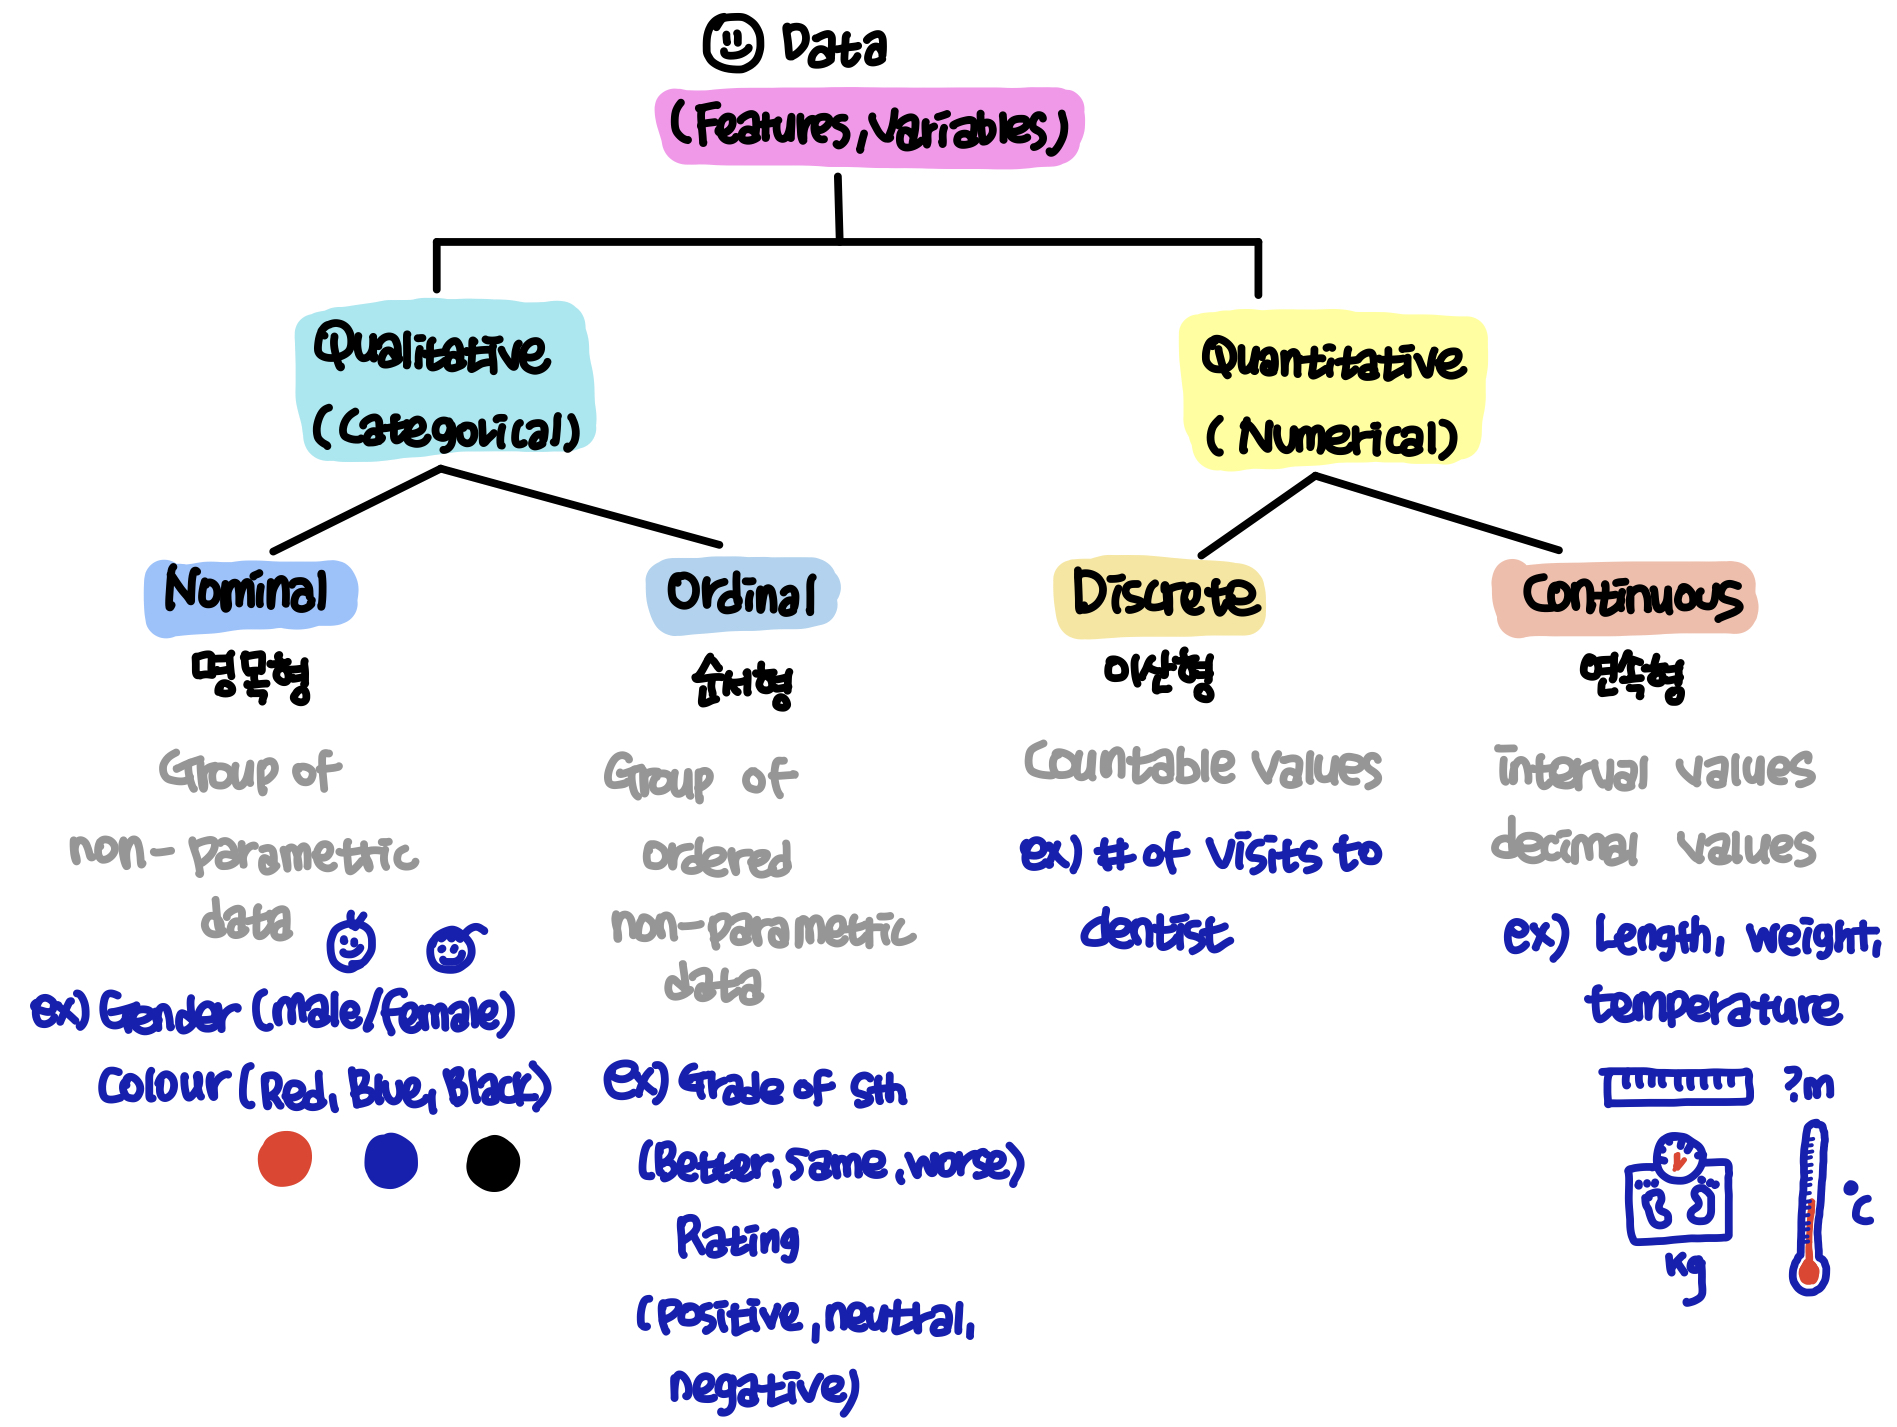 Data
(Features, Variables)
Qualitative
(Categorical)
Quantitative
(Numerical)
Nominal
명목형
Group of
non-parametric
data
ex) Gender (male/female)
Colour (Red, Blue, Black)
Ordinal
순서형
Group of
ordered
non-parametric
data
ex) Grade of sth
(Better, same, worse)
Rating
(Positive, neutral,
negative)
Discrete
이산형
Countable values
ex) # of visits to
dentist
Continuous
연속형
interval values
decimal values
ex) Length, weight,
temperature
?m
kg
°c